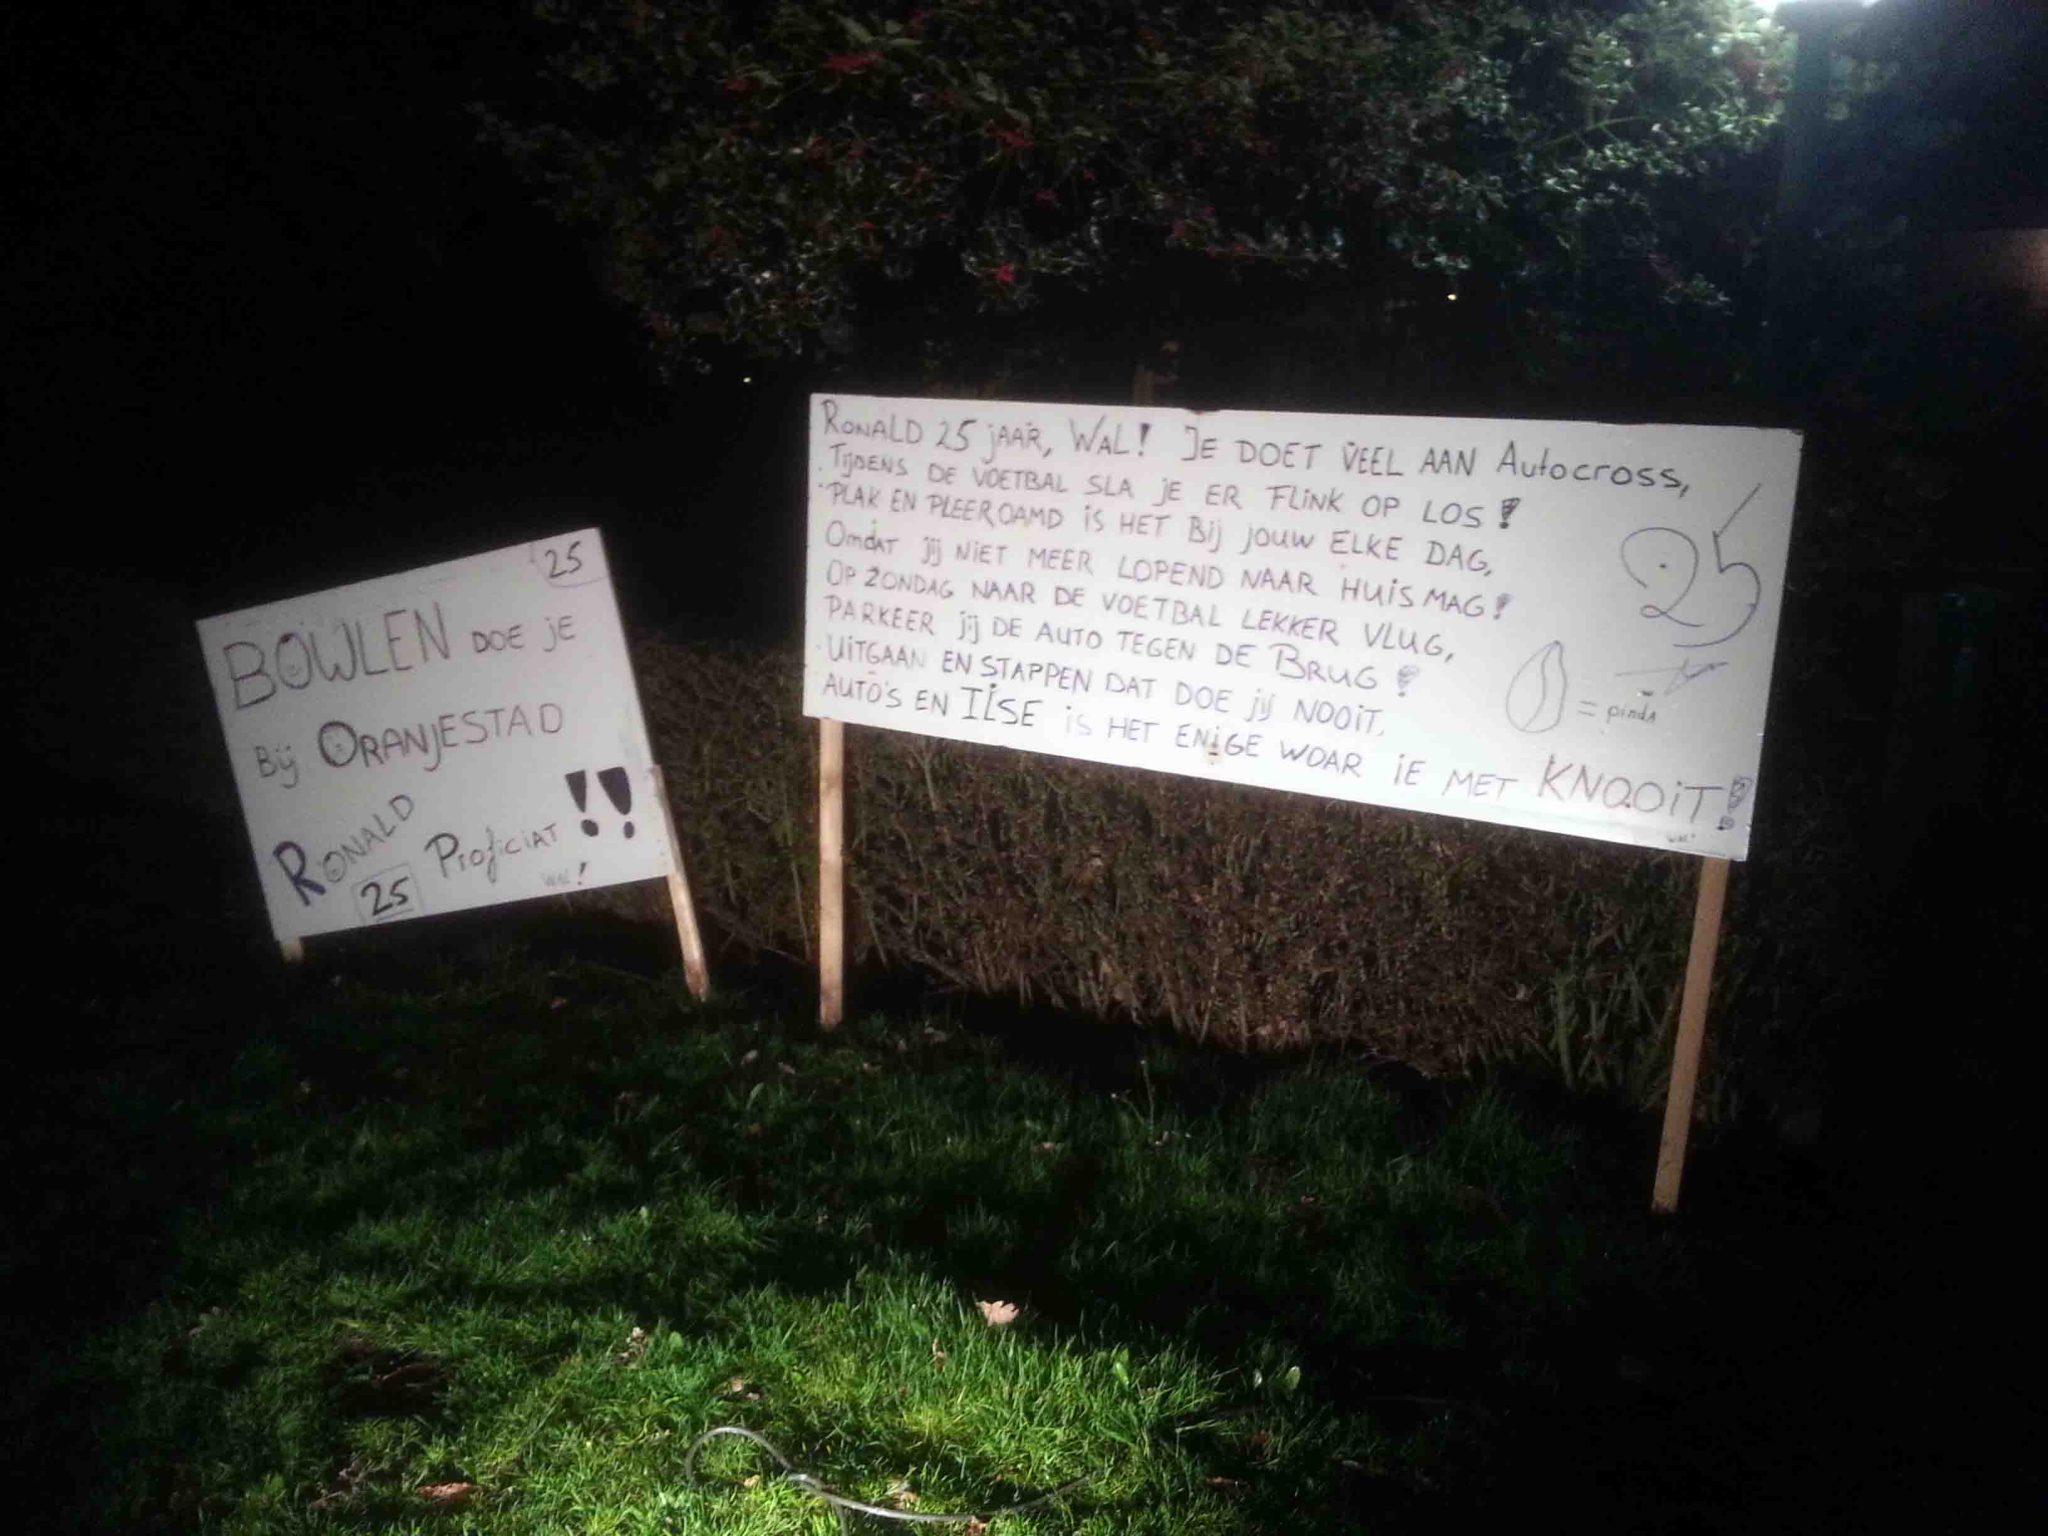 25
BOWLEN DOE JE
Bij ORANJESTAD
RONALD
25
Proficiat !!
WAL!
RONALD 25 jAAR, WAL! JE DOET VEEL AAN Autocross,
TijDENS DE VOETBAL SLA jE ER FLiNK OP LOS!
PLAK EN PLEEROAMD iS HET Bij jOUW ELKE DAG,
OmdAT jij NiET MEER LOPEND NAAR HUiS MAG!
OP ZONDAG NAAR DE VOETBAL LEKKER VLUG,
PARKEER jij DE AUTO TEGEN DE BRUG!
UiTGAAN EN STAPPEN DAT DOE jij NOOiT,
AUTO'S EN ILSE iS HET ENiGE WOAR iE MET KNOOiT!
25
= pinda
WAL!